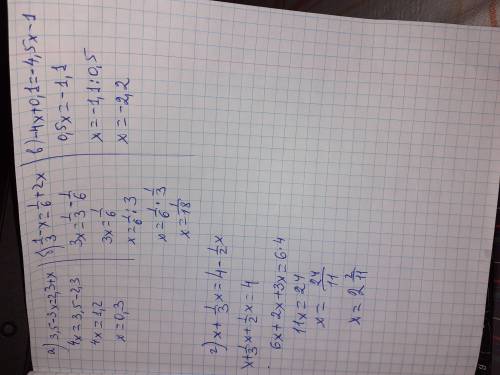 а) 3,5-3x=2,3+x
4x=3,5-2,3
4x=1,2
x=0,3
б) 1/3-x=1/6+2x
3x=1/3-1/6
3x=1/6
x=1/6:3
x=1/6·1/3
x=1/18
в)-4x+0,1=-4,5x-1
0,5x=-1,1
x=-1,1:0,5
x=-2,2
г) x+1/3x=4-1/2x
x+1/3x+1/2x=4
6x+2x+3x=6·4
11x=24
x=24/11
x=2 2/11